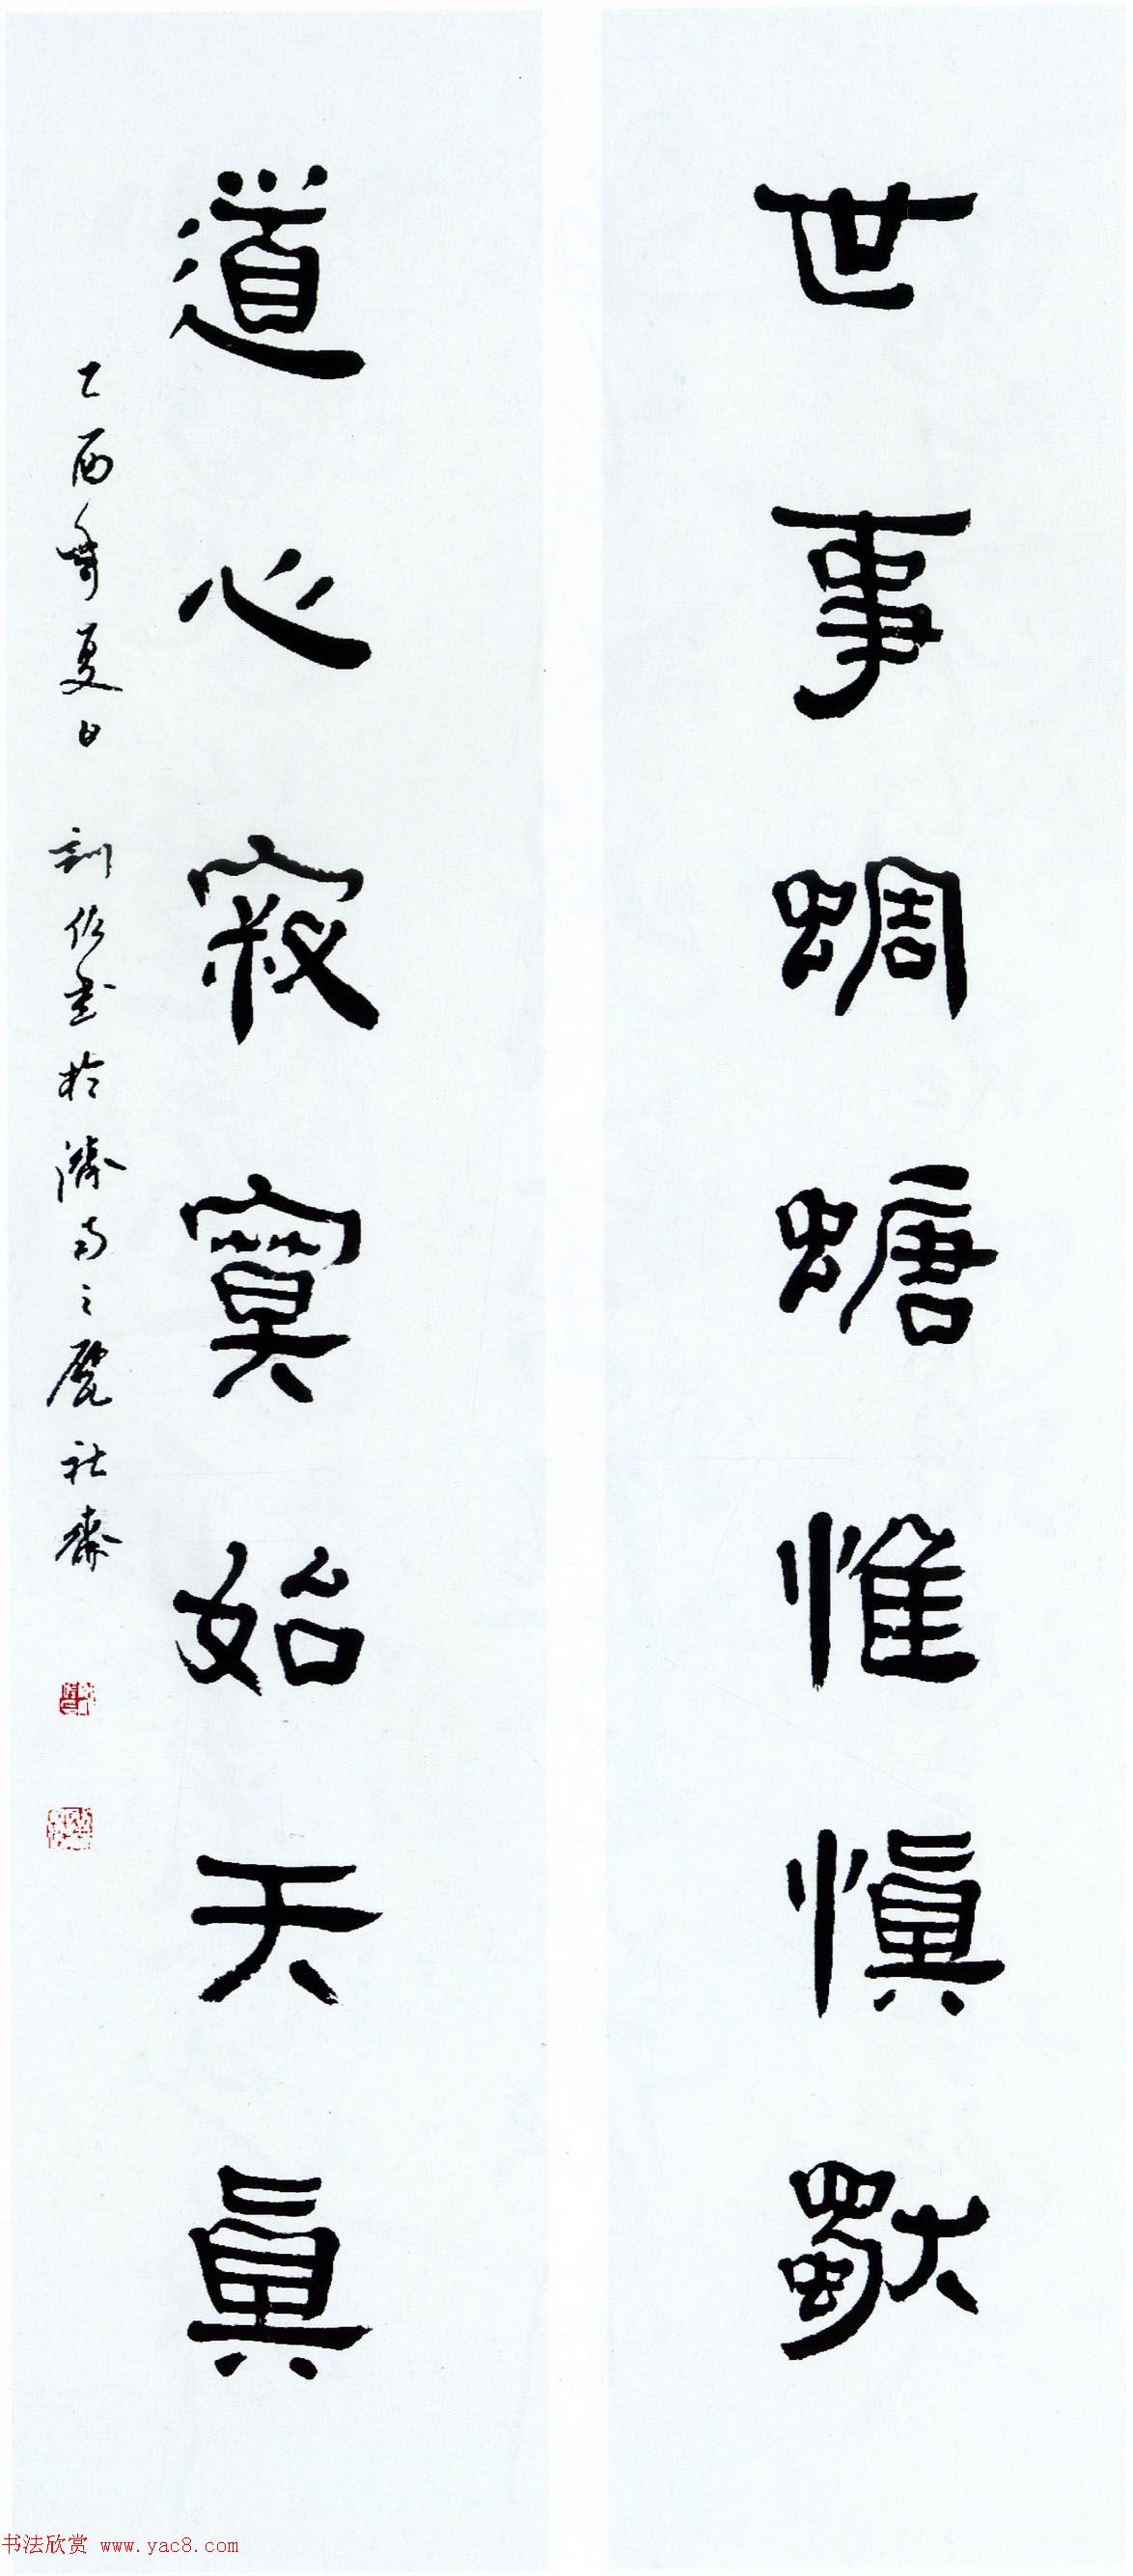 世事蜩螗惟愼獨
道心寂寞始天眞
乙酉年夏日 訓佐書於濟南之甓社齋
书法欣赏 www.yac8.com